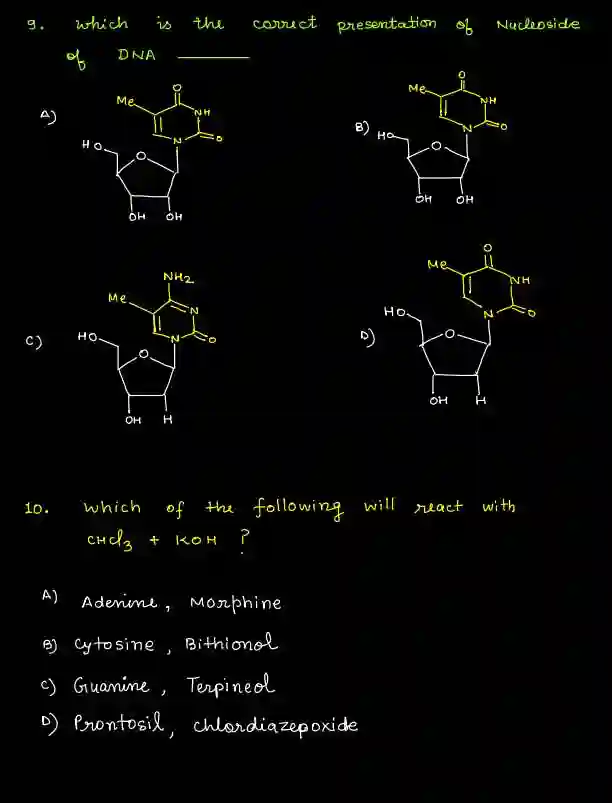 9. which is the correct presentation of Nucleoside
of DNA
A)
Me
O
NH
N
O
HO
O
OH OH
B)
Me
O
NH
N
O
HO
O
OH OH
C)
NH2
Me
N
N
O
HO
O
OH H
D)
O
Me
NH
N
O
HO
O
OH H
10. which of the following will react with
CHCl3 + KOH ?
A) Adenine, Morphine
B) Cytosine, Bithionol
C) Guanine, Terpineol
D) Prontosil, chlordiazepoxide